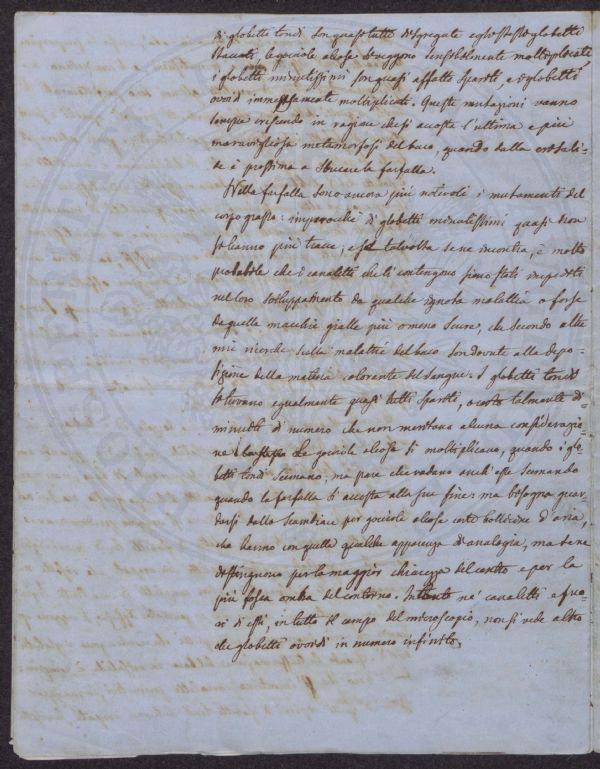 di globetti tondi son quasi tutti disgregati e gli stessi globetti
staccati le gociole oleose si veggono sensibilmente moltiplicate
i globetti minutissimi son quasi affatto spariti, e i globetti
ovoidi immensamente moltiplicati. Queste mutazioni vanno
sempre crescendo in ragione che si accosta l'ultima e più
maravigliosa metamorfosi del baco, quando dalla crisali-
de è prossima a sbucare la farfalla.
Nella farfalla sono ancora più notevoli i mutamenti del
corpo grasso: imperocchè di globetti minutissimi quasi non
si hanno più tracce; e se talvolta se ne incontra, è molto
probabile che i canaletti che li contengono sieno stati impediti
nel loro sviluppamento da qualche ignota malattia o forse
da quelle macchie gialle più o meno scure, che secondo altre
mie ricerche sulle malattie del baco son dovute alla depo-
sizione della materia colorante del sangue. I globetti tondi
si trovano egualmente quasi tutti spariti, o certo talmente di-
minuiti di numero che non meritano alcuna considerazio-
ne. Le gociole oleose si moltiplicano, quando i glo-
betti tondi scemano; ma pare che vadano anch'esse scemando
quando la farfalla si accosta alla sua fine: ma bisogna guar-
darsi dallo scambiare per gociole oleose certe bollicine d'aria,
che hanno con quelle qualche apparenza di analogia, ma si ne
distinguono per la maggior chiarezza del centro e per la
più fosca ombra del contorno. Intanto ne' canaletti e fuo-
ri di essi, in tutto il campo del microscopio, non si vede altro
che globetti ovoidi in numero infinito.